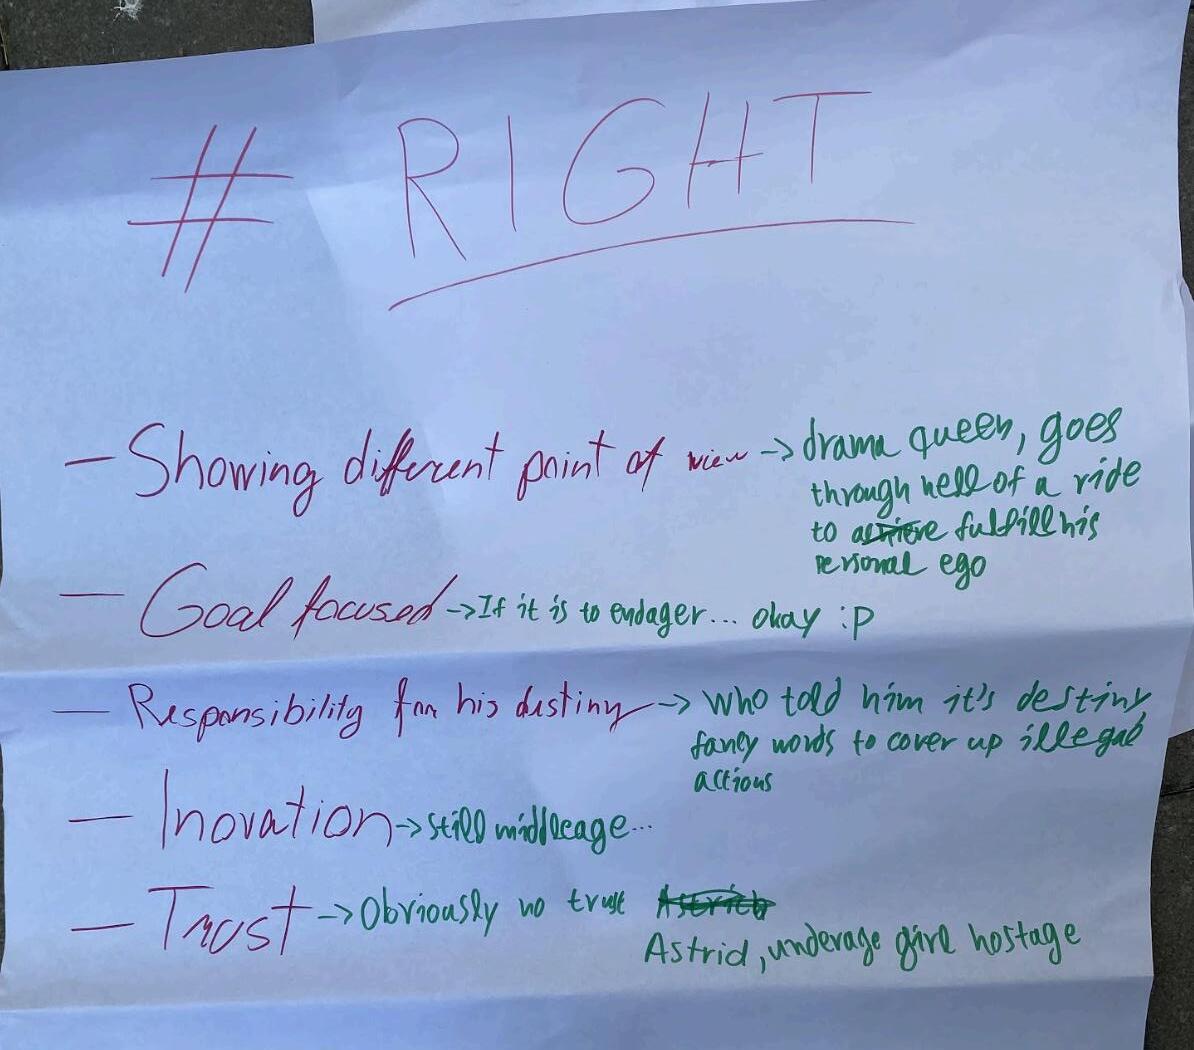 # RIGHT
- Showing different point of view -> drama queen, goes
through hell of a ride
to fulfill his
personal ego
- Goal focused -> If it is to endager... okay :p
- Responsibility for his destiny -> Who told him it's destiny
fancy words to cover up illegal
actions
- Inovation -> Still middleage...
- Trust -> Obviously no trust
Astrid, underage girl hostage